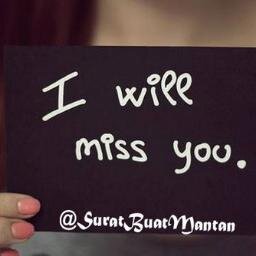 I will
miss you.
@SuratBuatMantan